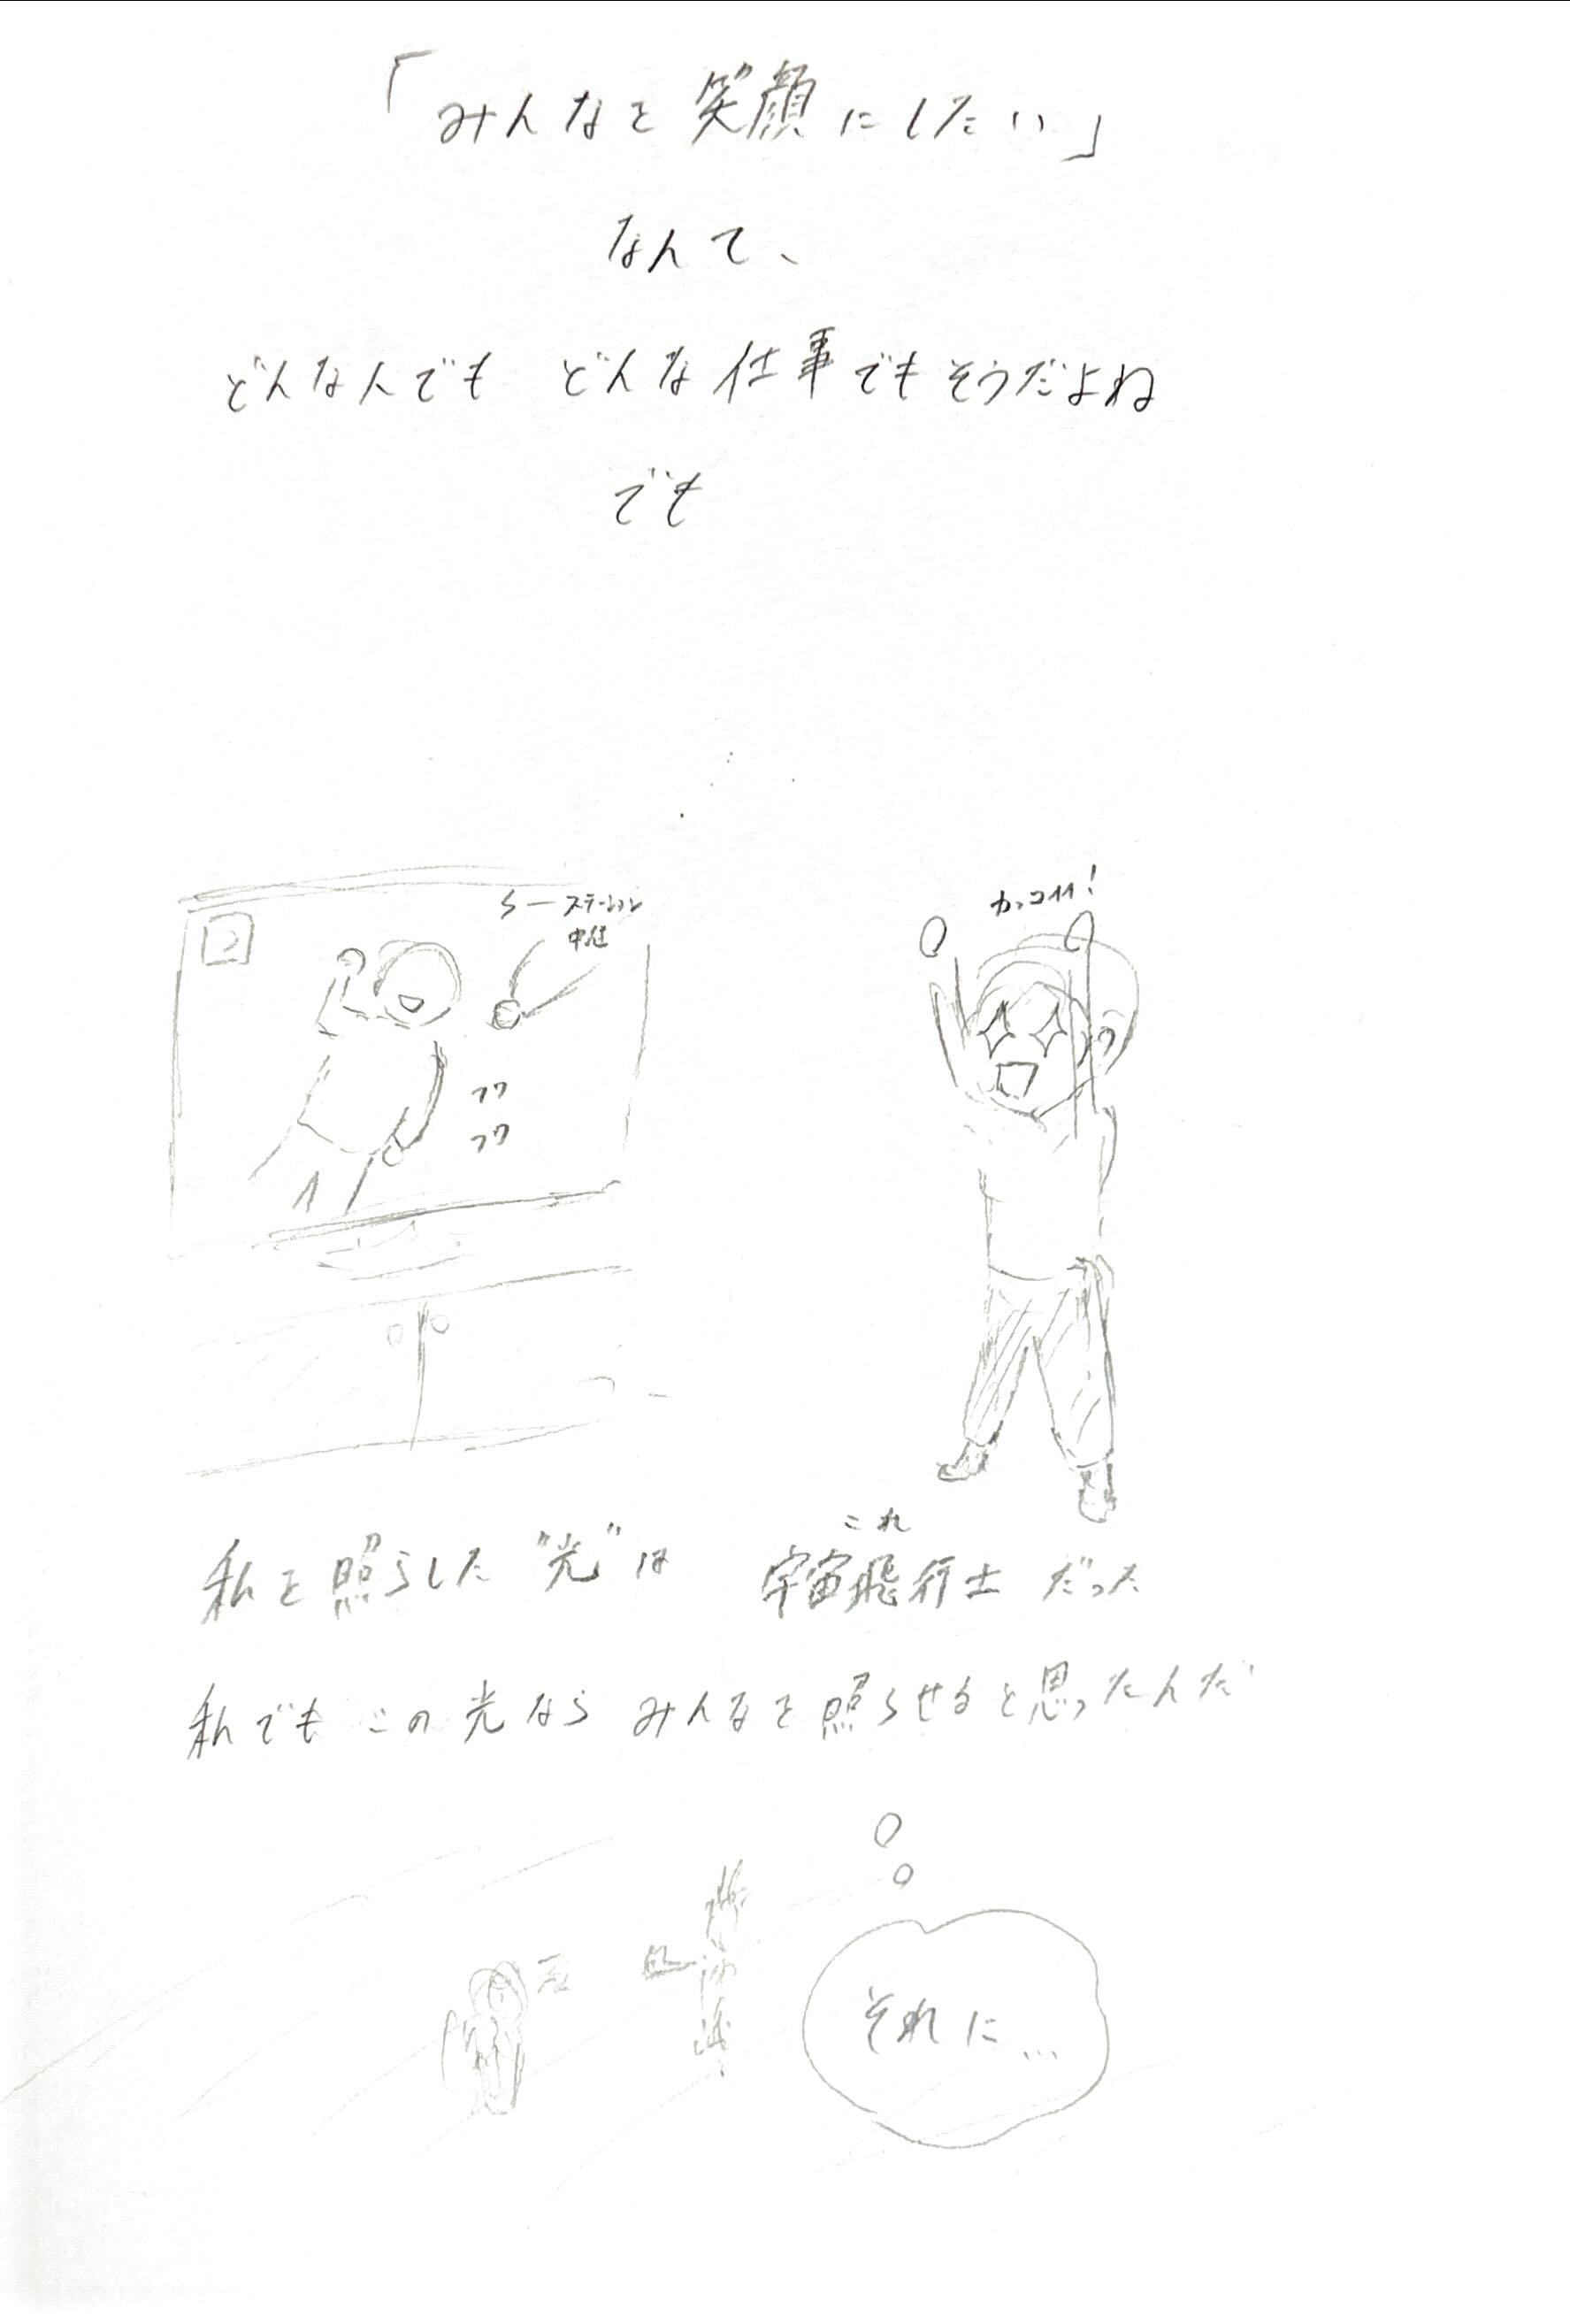 「みんなを笑顔にしたい」
なんて、
どんな人でも どんな仕事でもそうだよね
でも
ステーション
中継
カッコイイ!
フワ
フワ
私を照らした"光"は
これ
宇宙飛行士 だった
私でも この光なら みんなを照らせると思ったんだ
それに…